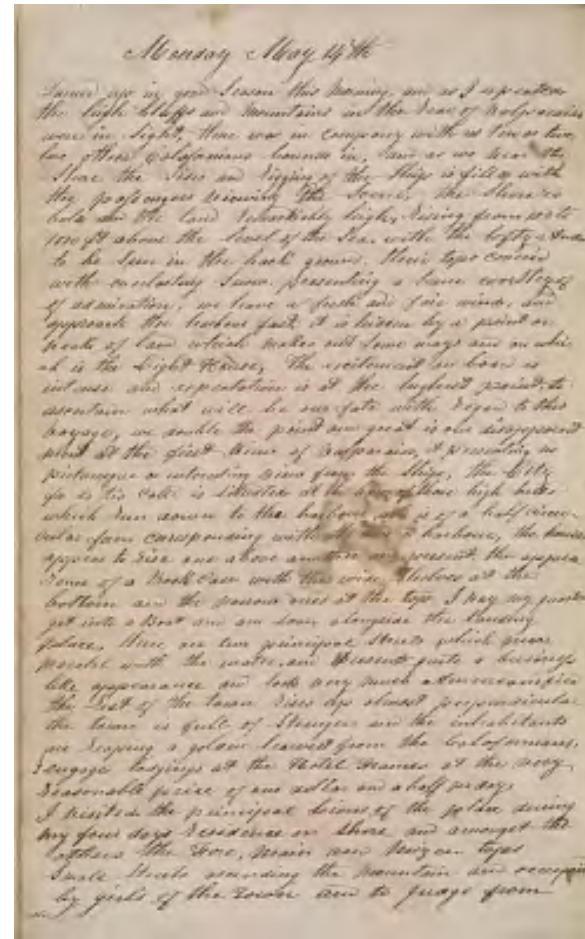 Monday May 14th
Turned up in good Season this morning, and as I expected
the high bluffs and mountains in the rear of Valparaiso
were in Sight, there was in company with us two or three
other Californians bound in, and as we near the
Shore the Sides and rigging of the Ships is filled with
the passengers viewing the Scene, the Shore is
bold and the land remarkably high, rising from to
1000 ft above the level of the Sea, with the lofty Andes
to be seen in the back ground, their tops covered
with everlasting Snow, presenting a Scene worthy
of admiration, we have a fresh and fair wind, and
approach the harbour fast, it is hidden by a point or
of land which makes out Some ways and on whi
ch is the Light House, The excitement on board is
intense and expectation is at the highest point, to
ascertain what will be our fate with regard to this
voyage, we double the point and great is our disappoint
ment at the first view of Valparaiso, it presenting no
picturesque or interesting view from the Ships, the City
So is situated at the of those high hills
which run down to the harbour, and is of a half circu
lar form corresponding with harbour, the houses
appear to rise one above another and present the appea
rance of a Book Case with the wide Shelves at the
bottom and the narrow ones at the top, I pay my quarter
get into a Boat and am soon alongside the landing
place, there are two principal Streets which
parallel with the water, and presents quite a business
like appearance and look very much Americanified
the rest of the town rises up almost perpendicular
the town is full of Strangers and the inhabitants
are reaping a golden harvest from the Californians,
I engage lodgings at the Hotel at the very
reasonable price of one dollar and a half per day,
I visited the principal lions of the place during
my four days residence on Shore, and amongst the
others the Fore, Main and Mizen tops
Small Streets ascending the mountain and occupied
by girls of the Town and to judge from